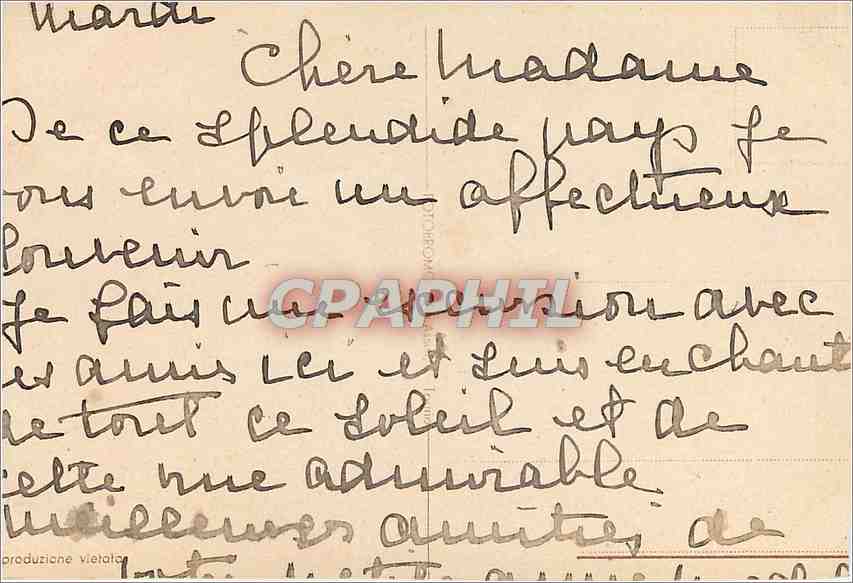 Mardi
Chère Madame
De ce splendide pays je
vous envoie un affectueux
souvenir
Je fais une excursion avec
es amis ici et suis enchant
de tout ce soleil et de
cette vue admirable
Meilleures amitiés de
produzione vietata
CPAPHIL